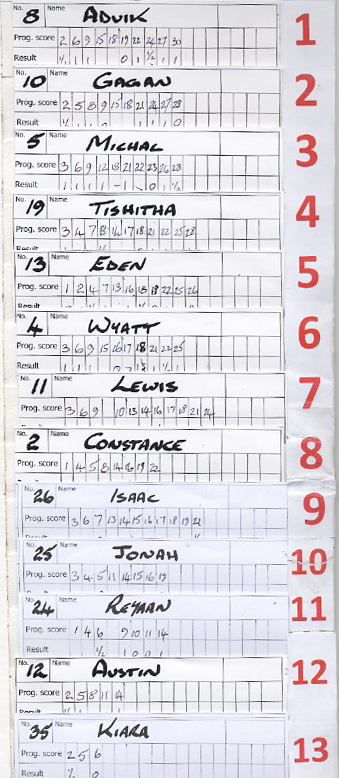 No. 8 Name ADVIK 1
Prog. score 2 6 9 15 18 19 22 24 27 30
Result ½ 1 1 0 1 ½ 1 1
No. 10 Name GAGAN 2
Prog. score 2 5 8 9 15 18 21 24 27 28
Result 1 1 1 0
No. 5 Name MICHAL 3
Prog. score 3 6 9 12 18 21 22 23 26 28
Result 1 1 1 1 - 1 - 0 1 ½
No. 19 Name TISHITHA 4
Prog. score 3 4 7 8 14 17 18 21 22 25 28
No. 13 Name EDEN 5
Prog. score 1 2 4 7 13 16 18 22 25 26
No. 4 Name WYATT 6
Prog. score 3 6 9 15 16 17 18 21 22 25
Result
No. 11 Name LEWIS 7
Prog. score 3 6 9 10 13 14 16 17 18 21 24
No. 2 Name CONSTANCE 8
Prog. score 1 4 5 8 14 16 19 22
No. 26 Name ISAAC 9
Prog. score 3 6 7 13 14 15 16 17 18 19 21
No. 25 Name JONAH 10
Prog. score 3 4 5 11 14 15 16 19
No. 24 Name REYAAN 11
Prog. score 1 4 6 9 10 11 14
Result ½ 1 0 0 1
No. 12 Name AUSTIN 12
Prog. score 2 5 8 11 14
No. 35 Name KIARA 13
Prog. score 2 5 6
Result ½ 0